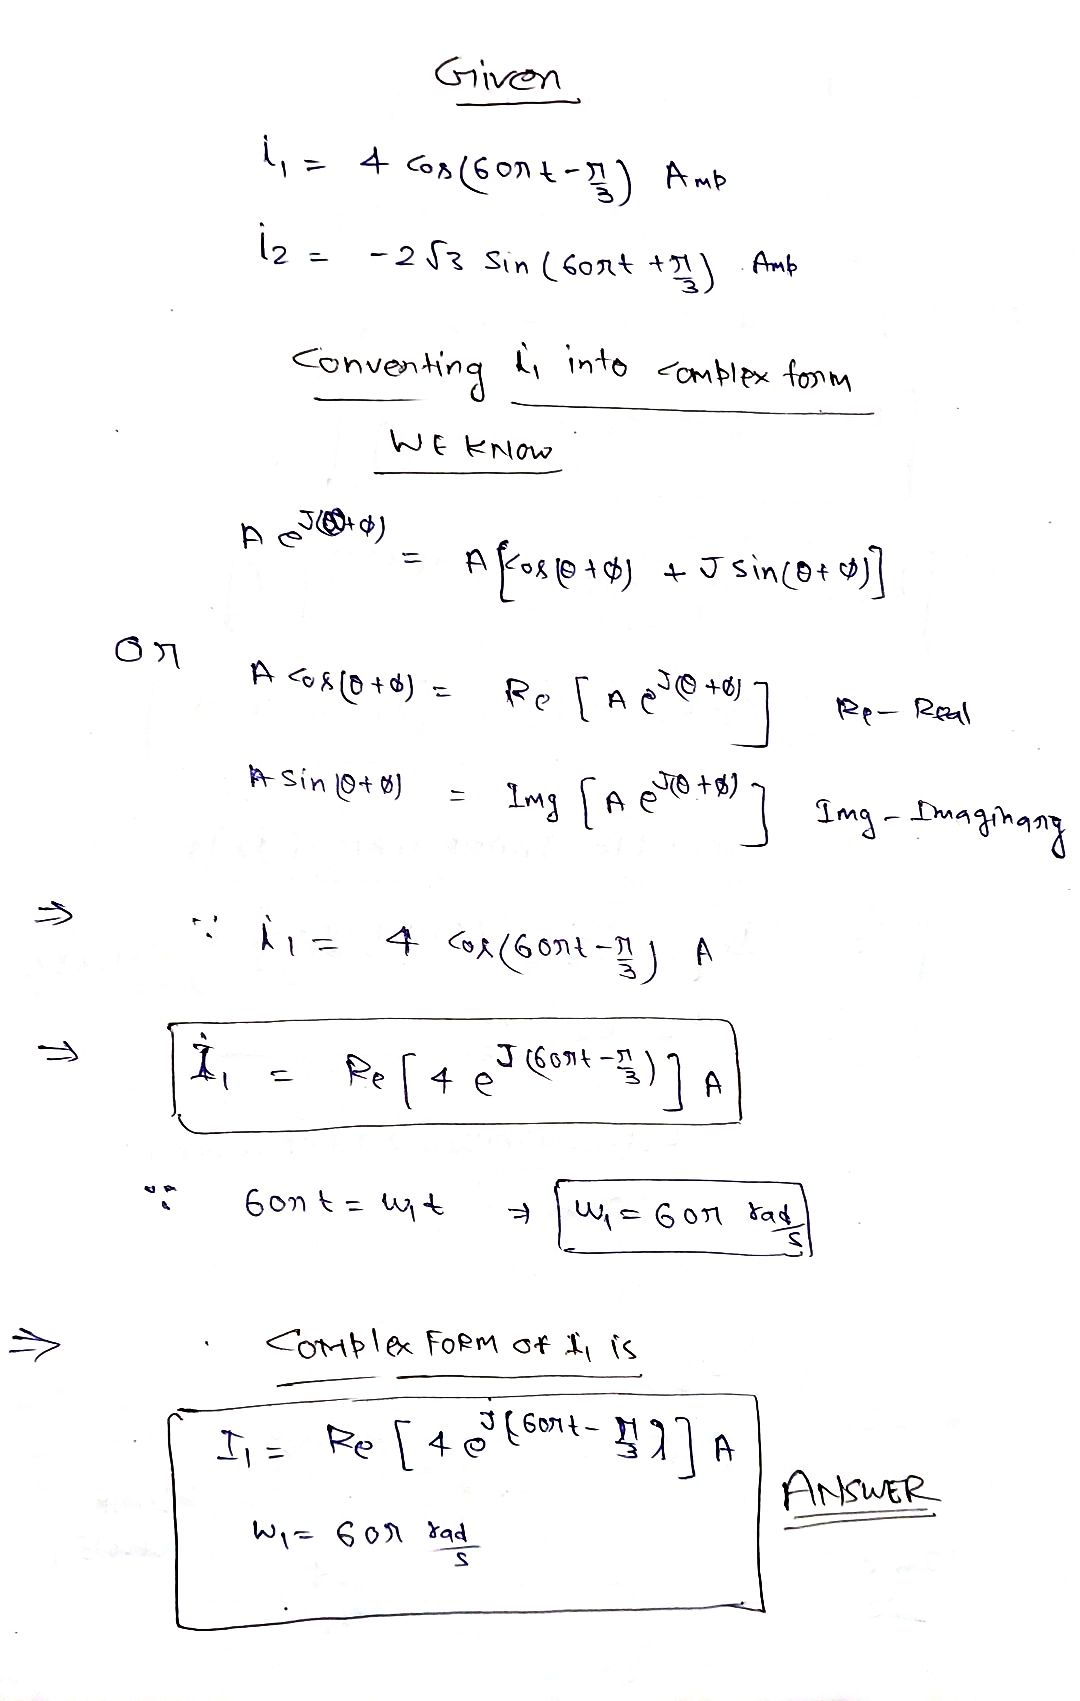 Given
i₁ = 4 cos(60πt - π/3) Amp
i₂ = -2√3 sin(60πt + π/3) Amp
Converting i₁ into complex form
WE KNOW
A e^J(θ+φ) = A[cos(θ+φ) + J sin(θ+φ)]
or
A cos(θ+φ) = Re [A e^J(θ+φ)] Re - Real
A sin(θ+φ) = Img [A e^J(θ+φ)] Img - Imaginary
⇒ ∵ i₁ = 4 cos(60πt - π/3) A
⇒ i₁ = Re[4 e^J(60πt - π/3)] A
∵ 60πt = w₁t ⇒ w₁ = 60π rad/s
⇒ Complex FORM of I₁ is
I₁ = Re [4 e^j(60πt - π/3)] A
ANSWER
w₁ = 60π rad/s